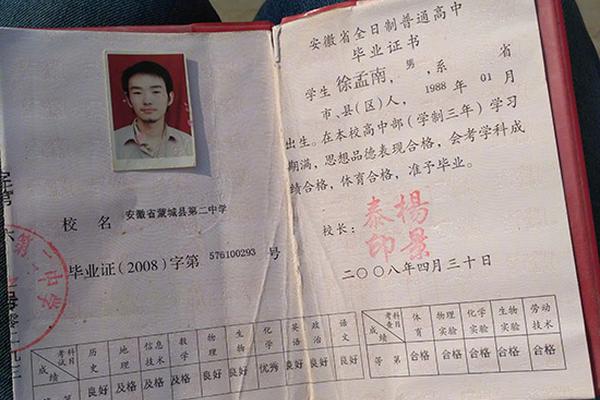 校名 安徽省蒙城县第二中学
毕业证(2008)字第 576100293 号
考试科目 历史 地理 信息技术 数学 物理 生物 化学 英语 政治 语文
成绩 良好 及格 及格 及格 良好 良好 优秀 良好 良好 良好
安徽省全日制普通高中
毕业证书
学生 徐孟南，男，系 省
市、县(区)人，1988 年 01 月
出生。在本校高中部(学制三年)学习
期满，思想品德表现合格，会考学科成
绩合格，体育合格，准予毕业。
校长：
楊景泰印
二〇〇八年四月三十日
考查科目 体育 物理实验 化学实验 生物实验 劳动技术
成绩
等第 合格 合格 合格 合格 合格